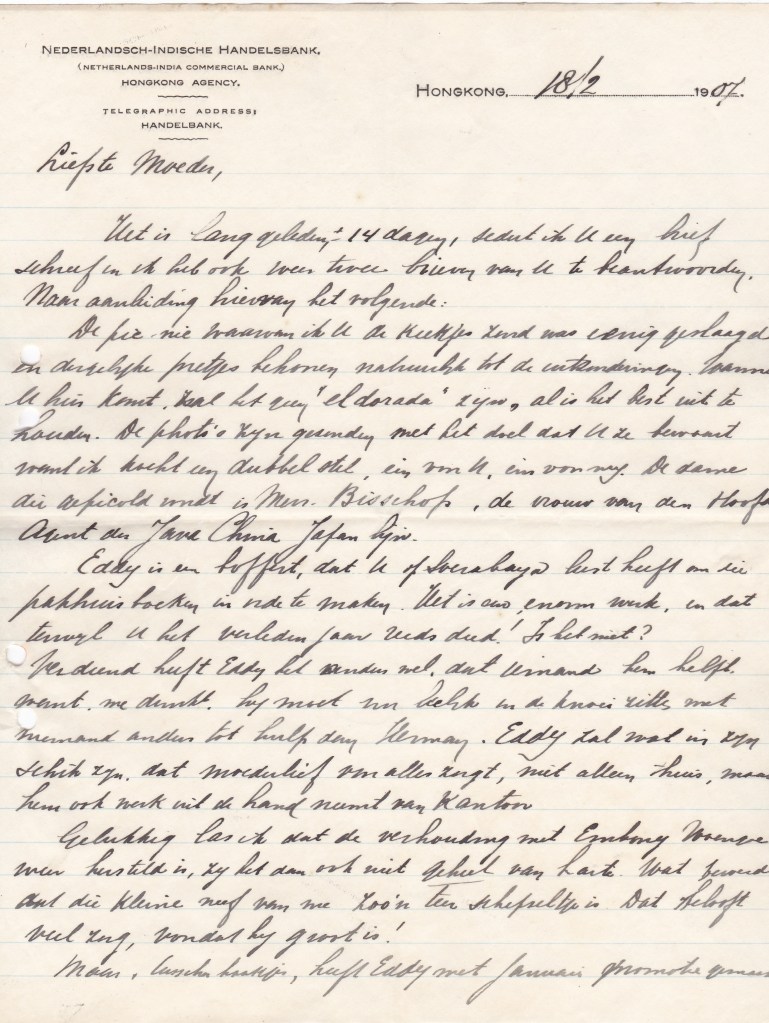 NEDERLANDSCH-INDISCHE HANDELSBANK.
(NETHERLANDS-INDIA COMMERCIAL BANK.)
HONGKONG AGENCY.
TELEGRAPHIC ADDRESS:
HANDELBANK.
HONGKONG, 18/2 1907.
Liefste Moeder,
Het is lang geleden, ± 14 dagen, sedert ik U een brief
schreef en ik heb ook weer twee brieven van U te beantwoorden.
Naar aanleiding hiervan het volgende:
De pic-nic waarvan ik U de kiekjes zend was eenig geslaagd
en dergelijke pretjes behoren natuurlijk tot de uitzonderingen. Wanne
U hier komt, zal het geen "el dorado" zijn, al is het best uit te
houden. De photo's zijn gezonden met het doel dat U ze bewaart
want ik kocht een dubbel stel, een voor U, een voor mij. De dame
die op wordt is Mevr. Bisschop, de vrouw van den Hoofd
Agent der Java China Japan lijn.
Eddy is een boffert, dat U op Soerabaya lust heeft om die
pakhuisboeken in orde te maken. Het is een enorm werk, en dat
terwijl U het verleden jaar reeds deed! Is het niet?
Verdiend heeft Eddy het anders wel, dat iemand hem helpt.
want, me dunkt, hij moet nu lelijk in de knoei zitten met
niemand anders tot hulp dan Herman. Eddy zal wat in zijn
schik zijn, dat moederlief voor alles zorgt, niet alleen thuis, maar
hem ook werk uit de hand neemt van Kantoor
Gelukkig las ik dat de verhouding met Embong Woengoe
weer hersteld is, zij het dan ook niet geheel van harte. Wat
dat die kleine neef van me zoo'n teer schepseltje is. Dat belooft
veel zorg, voordat hij groot is!
Maar, tusschen haakjes, heeft Eddy met Januari promotie gemaakt